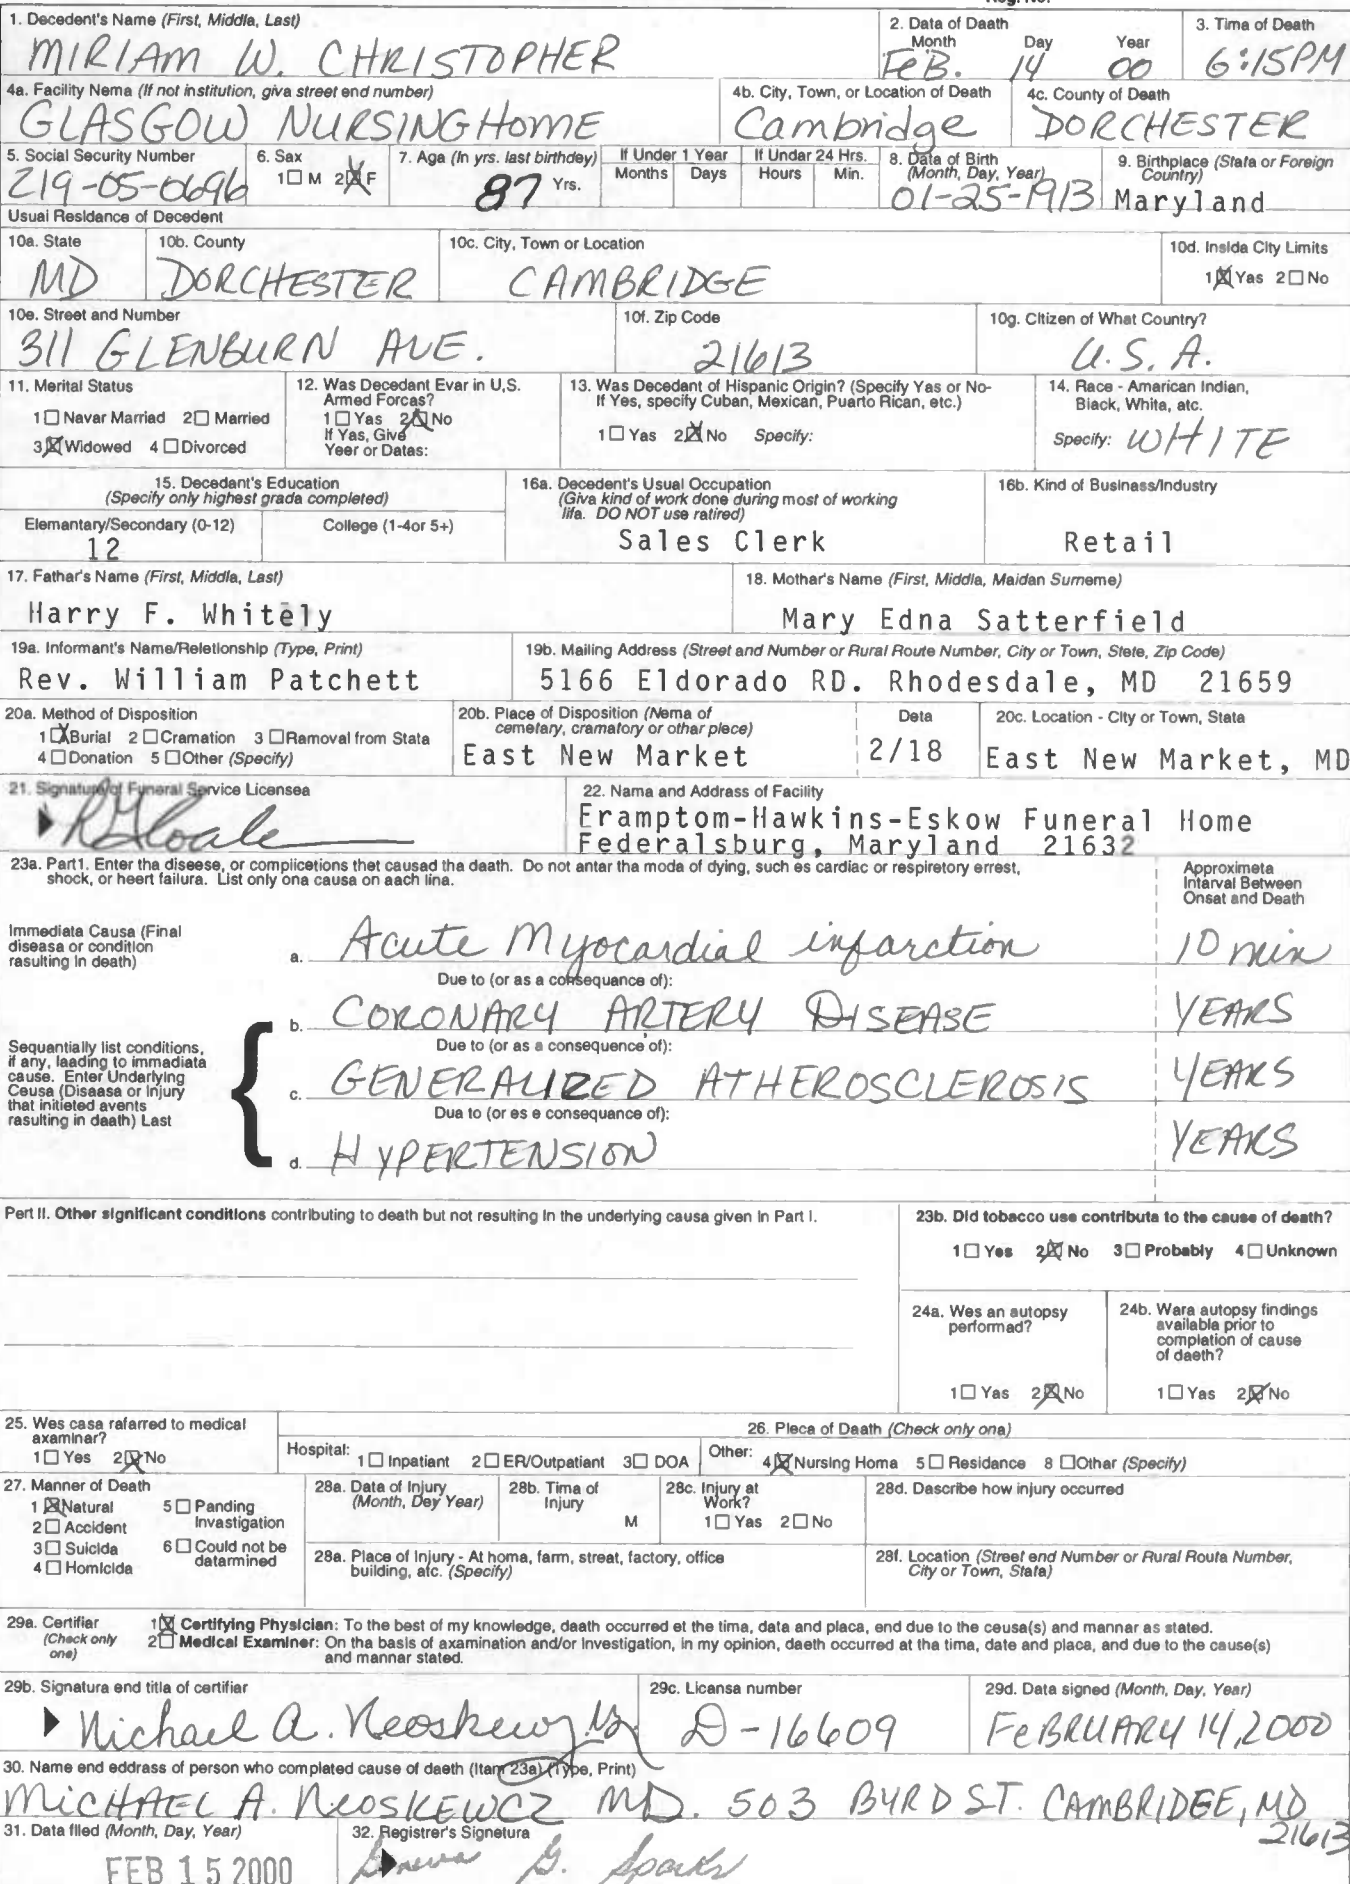 1. Decedent's Name (First, Middle, Last)
MIRIAM W. CHRISTOPHER
2. Data of Daath
Month Day Year
FeB. 14 00
3. Tima of Death
6:15PM
4a. Facility Nema (If not institution, giva street end number)
GLASGOW NURSING HOME
4b. City, Town, or Location of Death
Cambridge
4c. County of Death
DORCHESTER
5. Social Security Number
219-05-0696
6. Sax
1☐ M 2☒ F
7. Aga (In yrs. last birthdey)
87 Yrs.
If Under 1 Year
Months Days
If Undar 24 Hrs.
Hours Min.
8. Data of Birth
(Month, Day, Year)
01-25-1913
9. Birthplace (Stata or Foreign
Country)
Maryland
Usual Residance of Decedent
10a. State
MD
10b. County
DORCHESTER
10c. City, Town or Location
CAMBRIDGE
10d. Insida City Limits
1☒ Yas 2☐ No
10e. Street and Number
311 GLENBURN AVE.
10f. Zip Code
21613
10g. Citizen of What Country?
U.S.A.
11. Merital Status
1☐ Navar Marriad 2☐ Married
3☒ Widowed 4☐ Divorced
12. Was Decedant Evar in U,S.
Armed Forcas?
1☐ Yas 2☒ No
If Yas, Give
Yeer or Datas:
13. Was Decedant of Hispanic Origin? (Specify Yas or No-
If Yes, specify Cuban, Mexican, Puarto Rican, etc.)
1☐ Yas 2☒ No Specify:
14. Race - Amarican Indian,
Biack, Whita, atc.
Specify: WHITE
15. Decedant's Education
(Specify only highest grada completed)
Elemantary/Secondary (0-12)
12
College (1-4or 5+)
16a. Decedent's Usual Occupation
(Giva kind of work done during most of working
lifa. DO NOT use ratired)
Sales Clerk
16b. Kind of Businass/Industry
Retail
17. Fathar's Name (First, Middla, Last)
Harry F. Whitely
18. Mothar's Name (First, Middla, Maidan Surneme)
Mary Edna Satterfield
19a. Informant's Name/Reletionship (Type, Print)
Rev. William Patchett
19b. Mailing Address (Street and Number or Rural Route Number, City or Town, Stete, Zip Code)
5166 Eldorado RD. Rhodesdale, MD 21659
20a. Method of Disposition
1☒ Burial 2☐ Cramation 3☐ Ramoval from Stata
4☐ Donation 5☐ Other (Specify)
20b. Place of Disposition (Nema of
cemetary, cramatory or othar plece)
East New Market
Deta
2/18
20c. Location - City or Town, Stata
East New Market, MD
21. Signature of Funeral Service Licensea
22. Nama and Address of Facility
Framptom-Hawkins-Eskow Funeral Home
Federalsburg, Maryland 21632
23a. Part1. Enter tha diseese, or complicetions thet causad tha daath. Do not antar tha moda of dying, such es cardiac or respiretory errest,
shock, or heert failura. List only ona causa on aach lina.
Approximeta
Intarval Between
Onsat and Death
Immediata Causa (Final
diseasa or condition
rasulting in death)
a. Acute Myocardial infarction
10 min
Due to (or as a consequance of):
b. CORONARY ARTERY DISEASE
YEARS
Due to (or as a consequence of):
Sequantially list conditions,
if any, laading to immadiata
cause. Enter Undarlying
Ceusa (Disaasa or Injury
that initieted avents
rasulting in daath) Last
c. GENERALIZED ATHEROSCLEROSIS
YEARS
Dua to (or es e consequance of):
d. HYPERTENSION
YEARS
Part II. Other significant conditions contributing to death but not resulting in the underlying causa given in Part I.
23b. Did tobacco use contributa to the cause of death?
1☐ Yes 2☒ No 3☐ Probably 4☐ Unknown
24a. Wes an autopsy
performad?
1☐ Yas 2☒ No
24b. Wara autopsy findings
availabla prior to
complation of cause
of daeth?
1☐ Yas 2☒ No
25. Wes casa rafarred to medical
axaminar?
1☐ Yes 2☒ No
26. Pleca of Daath (Check only ona)
Hospital: 1☐ Inpatiant 2☐ ER/Outpatiant 3☐ DOA
Other: 4☒ Nursing Homa 5☐ Residance 8☐ Othar (Specify)
27. Manner of Death
1☒ Natural 5☐ Panding
Invastigation
2☐ Accident
3☐ Suicida 6☐ Could not be
datarmined
4☐ Homicida
28a. Data of Injury
(Month, Dey Year)
28b. Tima of
Injury
M
28c. Injury at
Work?
1☐ Yas 2☐ No
28d. Dascribe how injury occurred
28a. Place of Injury - At homa, farm, streat, factory, office
building, atc. (Specify)
28f. Location (Street end Number or Rural Routa Number,
City or Town, Stata)
29a. Certifiar
(Chack only
one)
1☒ Certifying Physician: To the best of my knowledge, daath occurred et the tima, data and placa, end due to the ceusa(s) and mannar as stated.
2☐ Medical Examiner: On tha basis of axamination and/or Investigation, in my opinion, daeth occurred at tha tima, date and placa, and due to the cause(s)
and mannar stated.
29b. Signatura end titla of certifiar
Michael A. Neoskewcz
29c. Licansa number
D-16609
29d. Data signed (Month, Day, Year)
FeBRUARY 14, 2000
30. Name end eddrass of person who complated cause of daeth (Itam 23a) (Type, Print)
MiCHAEL A. NEOSKEWCZ MD. 503 BYRD ST. CAMBRIDEE, MD
21613
31. Data filed (Month, Day, Year)
FEB 15 2000
32. Registrer's Signetura
Geneva G. Sparks